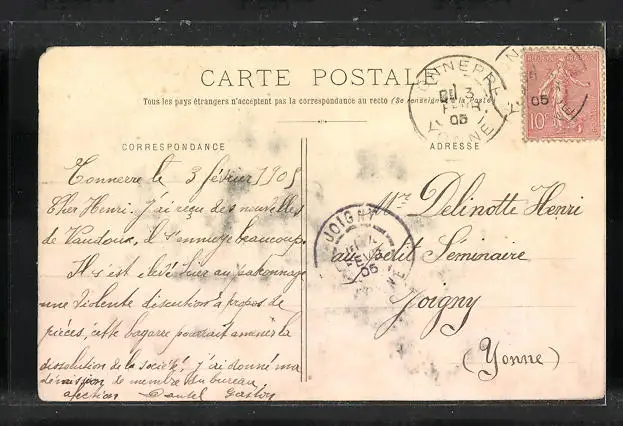 CARTE POSTALE
Tous les pays étrangers n'acceptent pas la correspondance au recto (Se renseigner à la Poste)
CORRESPONDANCE
Tonnerre le 3 février 1905
Cher Henri. J'ai reçu des nouvelles
de Vaudoux, il s'ennuye beaucoup.
Il s'est élevé hier au patronnage
une violente discution à propos de
pièces, cette bagarre pourrait amener la
dissolution de la société! j'ai donné ma
démission de membre du bureau
afection Daniel Gaston
ADRESSE
Mr Delinotte Henri
au petit Séminaire
Joigny
(Yonne)
TONNERRE
3
FEVR
05
YONNE
05
10
JOIGNY
05